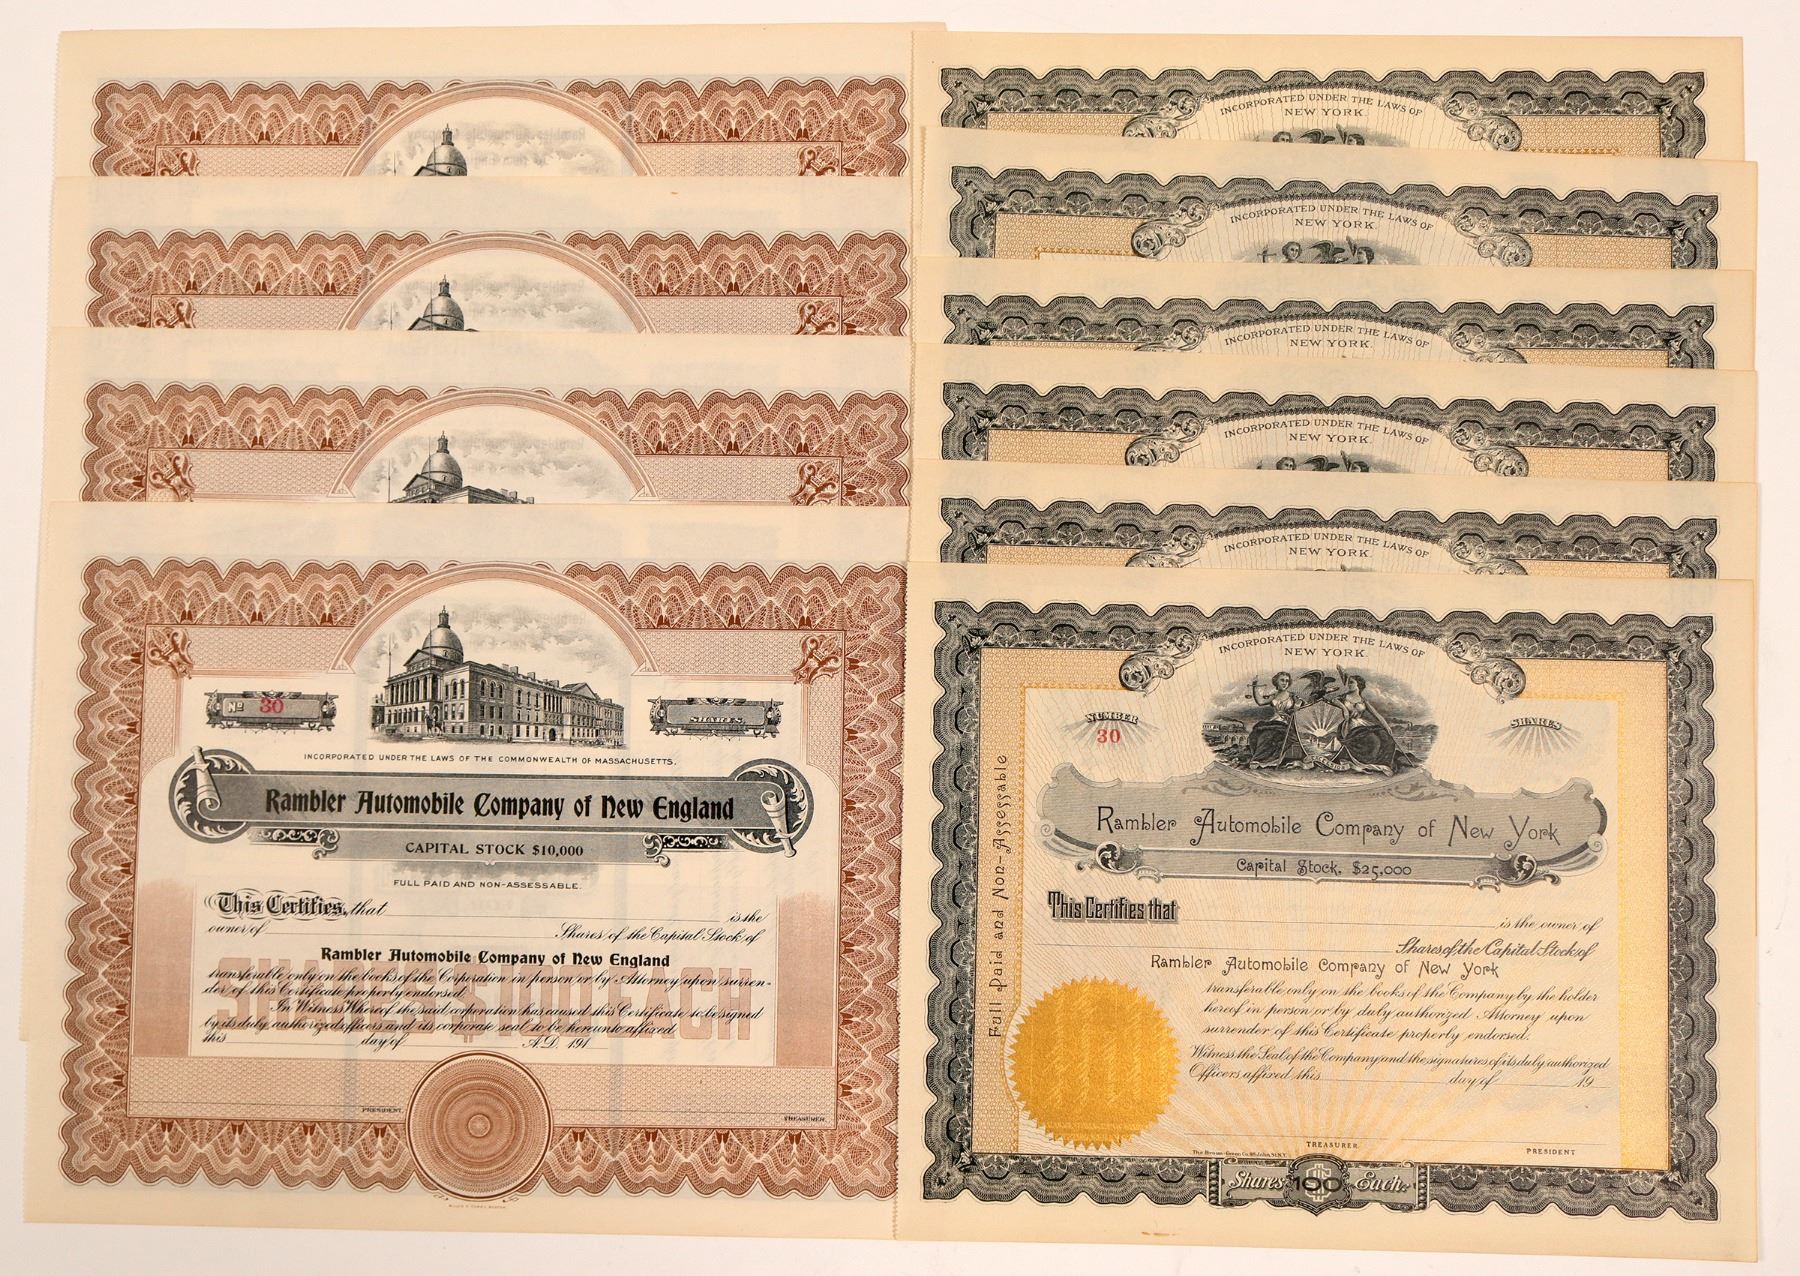 Nº 30
SHARES
INCORPORATED UNDER THE LAWS OF THE COMMONWEALTH OF MASSACHUSETTS.
Rambler Automobile Company of New England
CAPITAL STOCK $10,000
FULL PAID AND NON-ASSESSABLE.
This Certifies, that is the
owner of Shares of the Capital Stock of
Rambler Automobile Company of New England
transferable only on the books of the Corporation in person or by Attorney upon surren-
der of this Certificate properly endorsed.
In Witness Whereof the said corporation has caused this Certificate to be signed
by its duly authorized officers and its corporate seal to be hereunto affixed
this day of A.D. 191
SHARES $100 EACH
PRESIDENT.
TREASURER.
INCORPORATED UNDER THE LAWS OF
NEW YORK.
INCORPORATED UNDER THE LAWS OF
NEW YORK.
INCORPORATED UNDER THE LAWS OF
NEW YORK.
INCORPORATED UNDER THE LAWS OF
NEW YORK.
INCORPORATED UNDER THE LAWS OF
NEW YORK.
INCORPORATED UNDER THE LAWS OF
NEW YORK.
NUMBER
30
SHARES
EXCELSIOR
Rambler Automobile Company of New York
Capital Stock, $25,000
Full Paid and Non-Assessable
This Certifies that
is the owner of
Shares of the Capital Stock of
Rambler Automobile Company of New York
transferable only on the books of the Company by the holder
hereof in person or by duly authorized Attorney upon
surrender of this Certificate properly endorsed.
Witness the Seal of the Company and the signatures of its duly authorized
Officers affixed this day of 19
TREASURER.
PRESIDENT
Shares $100 Each.